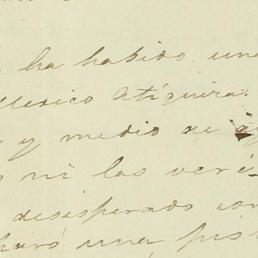 ha habido una
Mexico Atiquira.
y medio de
ni las veri
desesperado con
una pis